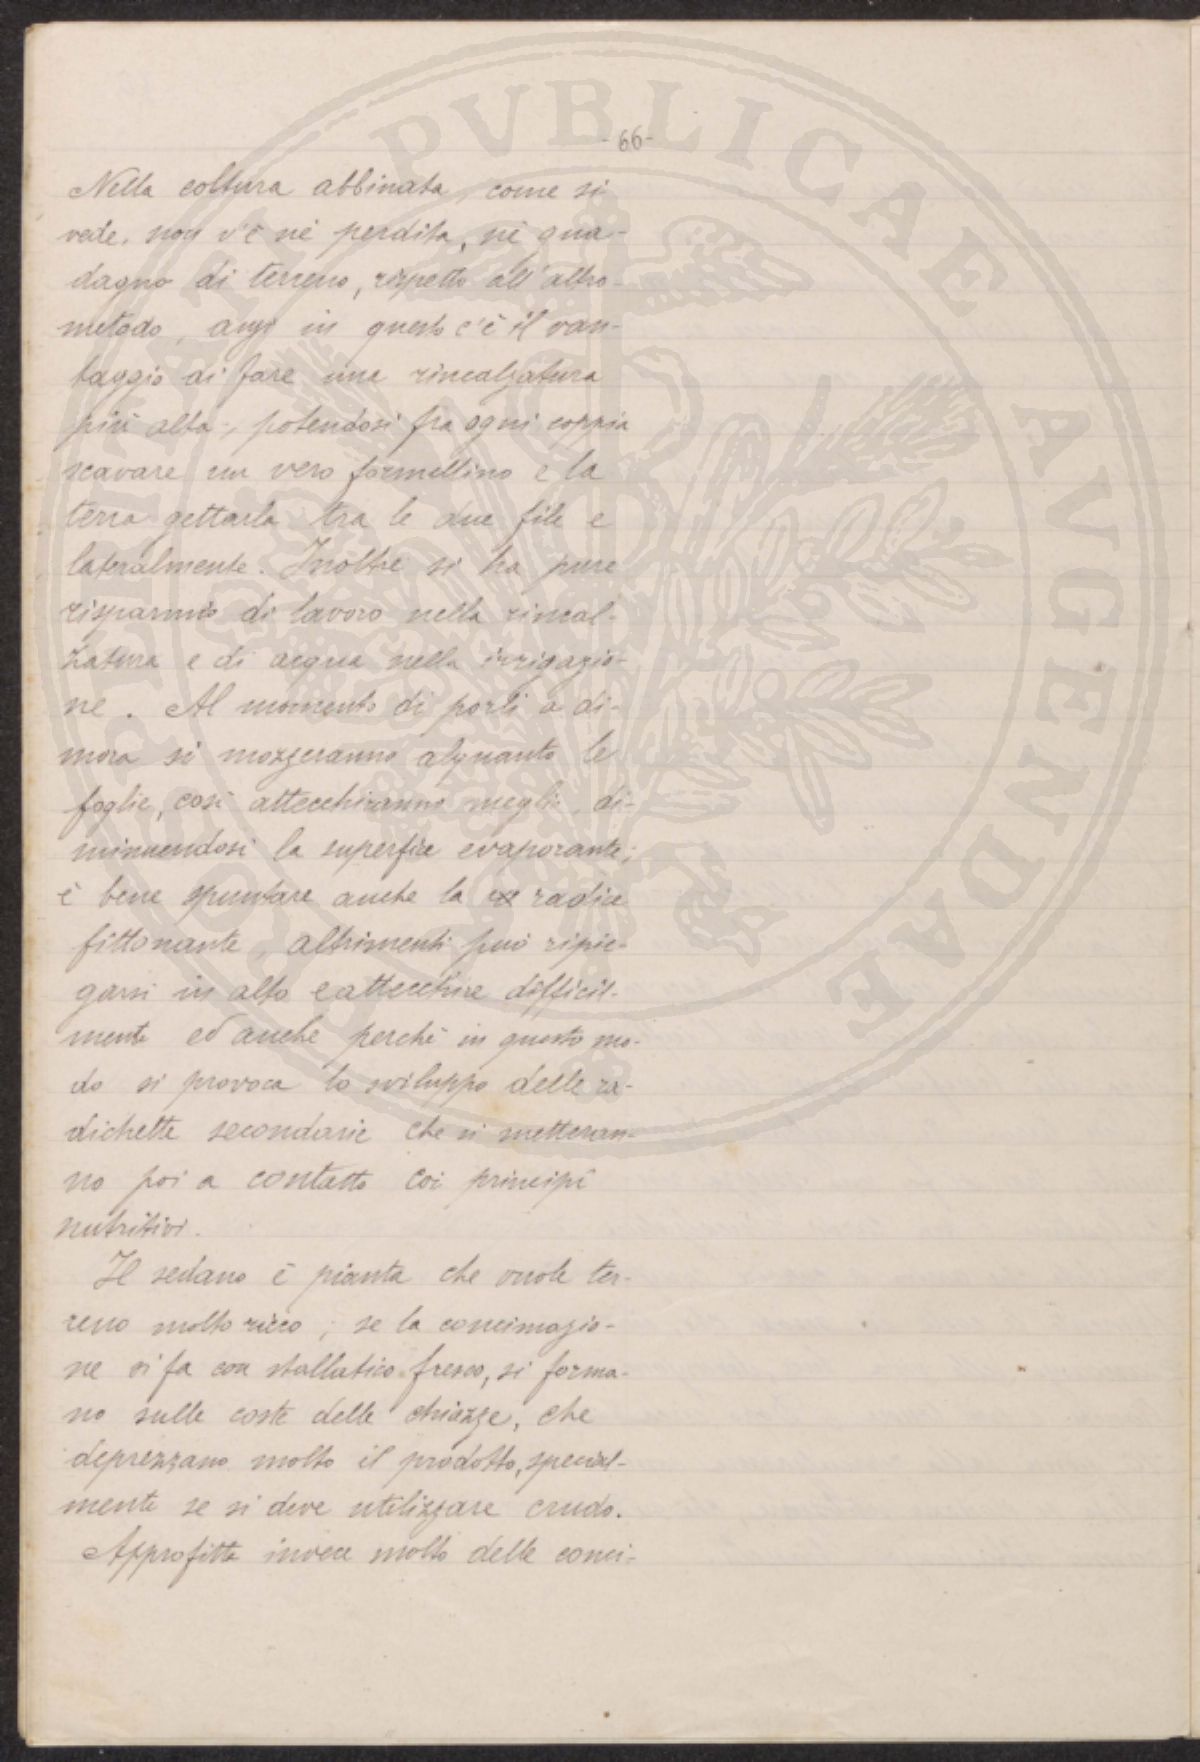 -66-
Nella coltura abbinata, come si
vede, non v'è nè perdita, nè gua-
dagno di terreno, rispetto all'altro
metodo, anzi in questo c'è il van-
taggio di fare una rincalzatura
più alta, potendosi fra ogni coppia
scavare un vero formellino e la
terra gettarla tra le due file e
lateralmente. Inoltre si ha pure
risparmio di lavoro nella rincal-
zatura e di acqua nella irrigazio-
ne. Al momento di porli a di-
mora si mozzeranno alquanto le
foglie, così attecchiranno meglio, di-
minuendosi la superfice evaporante;
è bene spuntare anche la radice
fittonante, altrimenti può ripie-
garsi in alto e attecchire difficil-
mente ed anche perchè in questo mo-
do si provoca lo sviluppo delle ra-
dichette secondarie che si metteran-
no poi a contatto coi principî
nutritivi.
Il sedano è pianta che vuole ter-
reno molto ricco; se la concimazio-
ne si fa con stallatico fresco, si forma-
no sulle coste delle chiazze, che
deprezzano molto il prodotto, special-
mente se si deve utilizzare crudo.
Approfitta invece molto delle conci-
PVBLICAE AVGENDAE